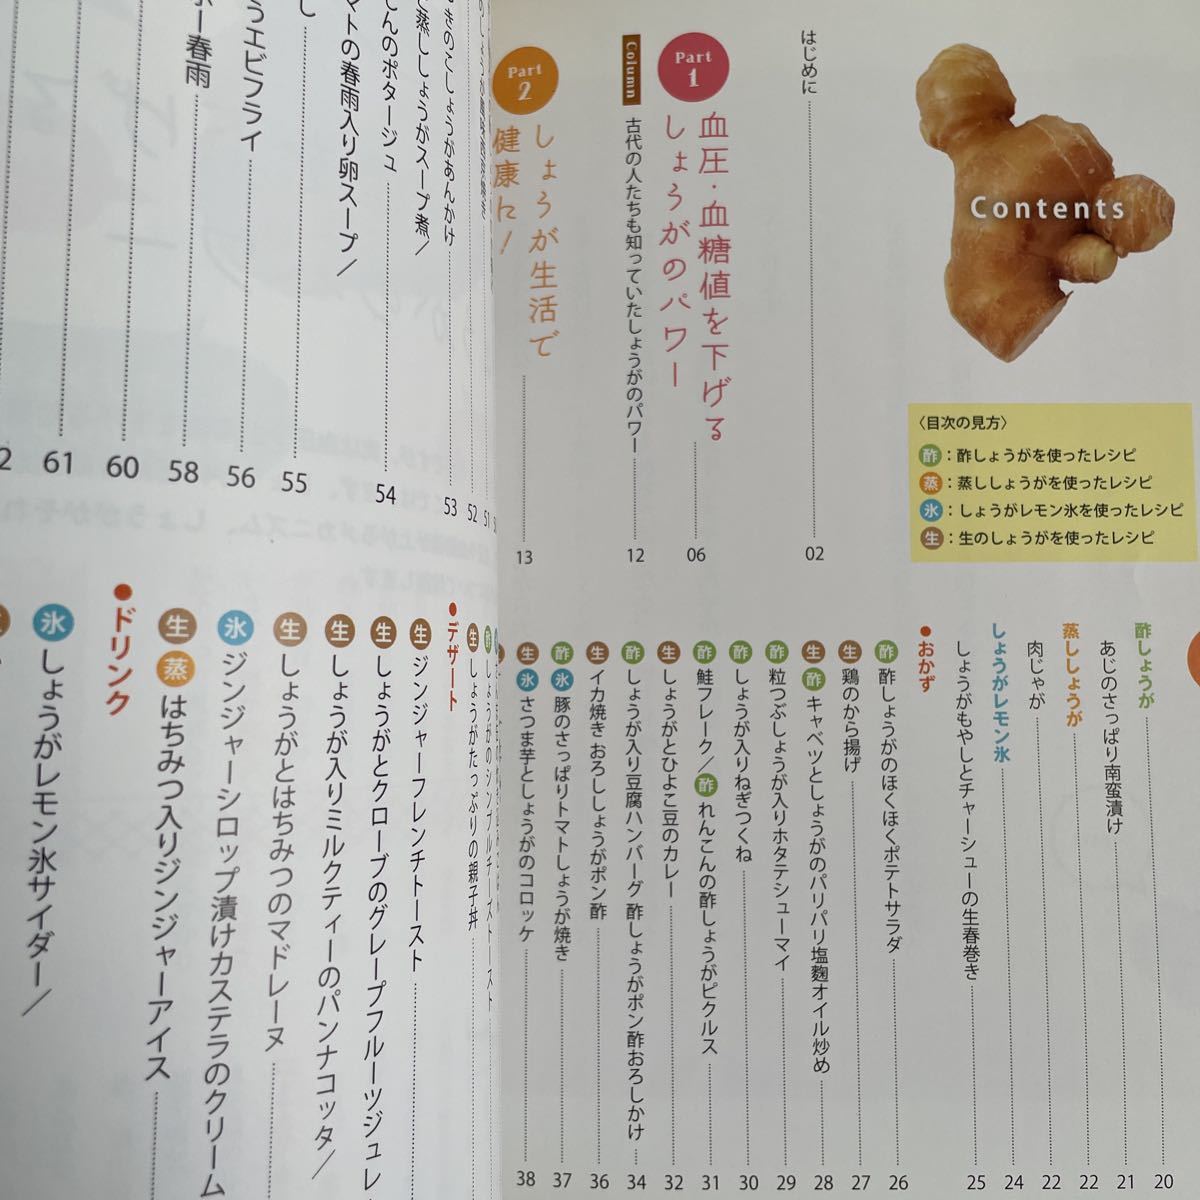 Contents
〈目次の見方〉
酢：酢しょうがを使ったレシピ
蒸：蒸ししょうがを使ったレシピ
氷：しょうがレモン氷を使ったレシピ
生：生のしょうがを使ったレシピ
はじめに 02
Part 1
血圧・血糖値を下げる
しょうがのパワー 06
Column 古代の人たちも知っていたしょうがのパワー 12
Part 2
しょうが生活で
健康に！ 13
酢しょうが 20
あじのさっぱり南蛮漬け 21
蒸ししょうが 22
肉じゃが 22
しょうがレモン氷 24
しょうがもやしとチャーシューの生春巻き 25
●おかず
酢 酢しょうがのほくほくポテトサラダ 26
生 鶏のから揚げ 27
生 酢 キャベツとしょうがのパリパリ塩麹オイル炒め 28
酢 粒つぶしょうが入りホタテシューマイ 29
酢 しょうが入りねぎつくね 30
酢 鮭フレーク／酢 れんこんの酢しょうがピクルス 31
生 しょうがとひよこ豆のカレー 32
酢 しょうが入り豆腐ハンバーグ 酢しょうがポン酢おろしかけ 34
生 イカ焼き おろししょうがポン酢 36
酢 氷 豚のさっぱりトマトしょうが焼き 37
生 氷 さつま芋としょうがのコロッケ 38
きのこしょうがあんかけ
蒸ししょうがスープ煮／
んのポタージュ
マトの春雨入り卵スープ／
し
うエビフライ
春雨
51
52
53
54
55
56
58
60
61
酢 しょうがのシンプルチーズトースト
生 しょうがたっぷりの親子丼
●デザート
生 ジンジャーフレンチトースト
生 しょうがとクローブのグレープフルーツジュレ
生 しょうが入りミルクティーのパンナコッタ／
生 しょうがとはちみつのマドレーヌ
氷 ジンジャーシロップ漬けカステラのクリーム
生 蒸 はちみつ入りジンジャーアイス
●ドリンク
氷 しょうがレモン氷サイダー／